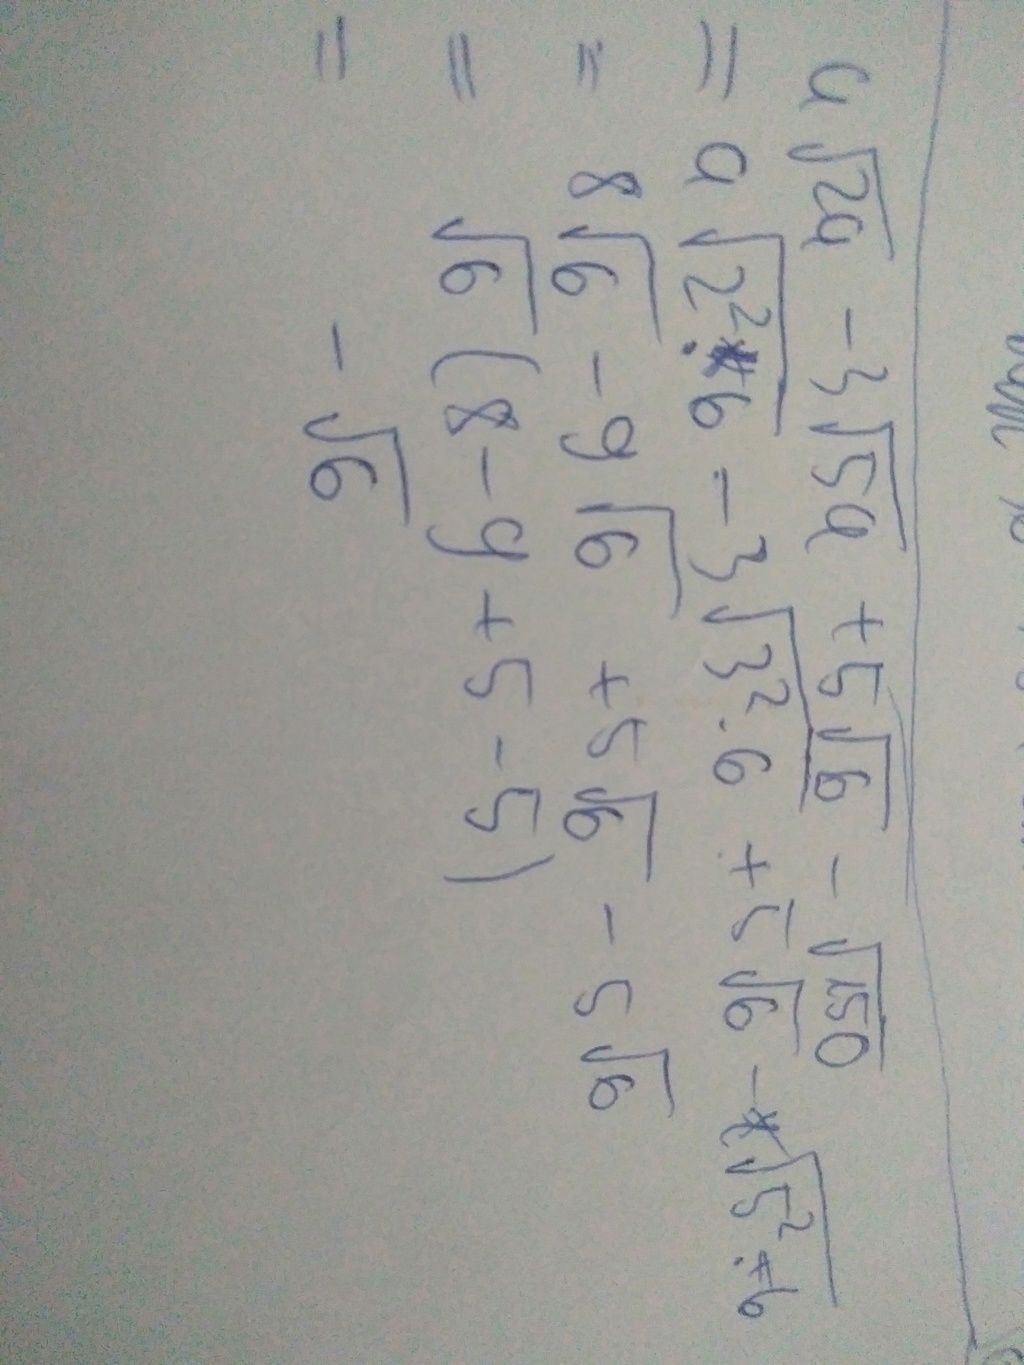 4√24 - 3√54 + 5√6 - √150
= 4√2²·6 - 3√3²·6 + 5√6 - √5²·6
= 8√6 - 9√6 + 5√6 - 5√6
= √6 (8 - 9 + 5 - 5)
= -√6